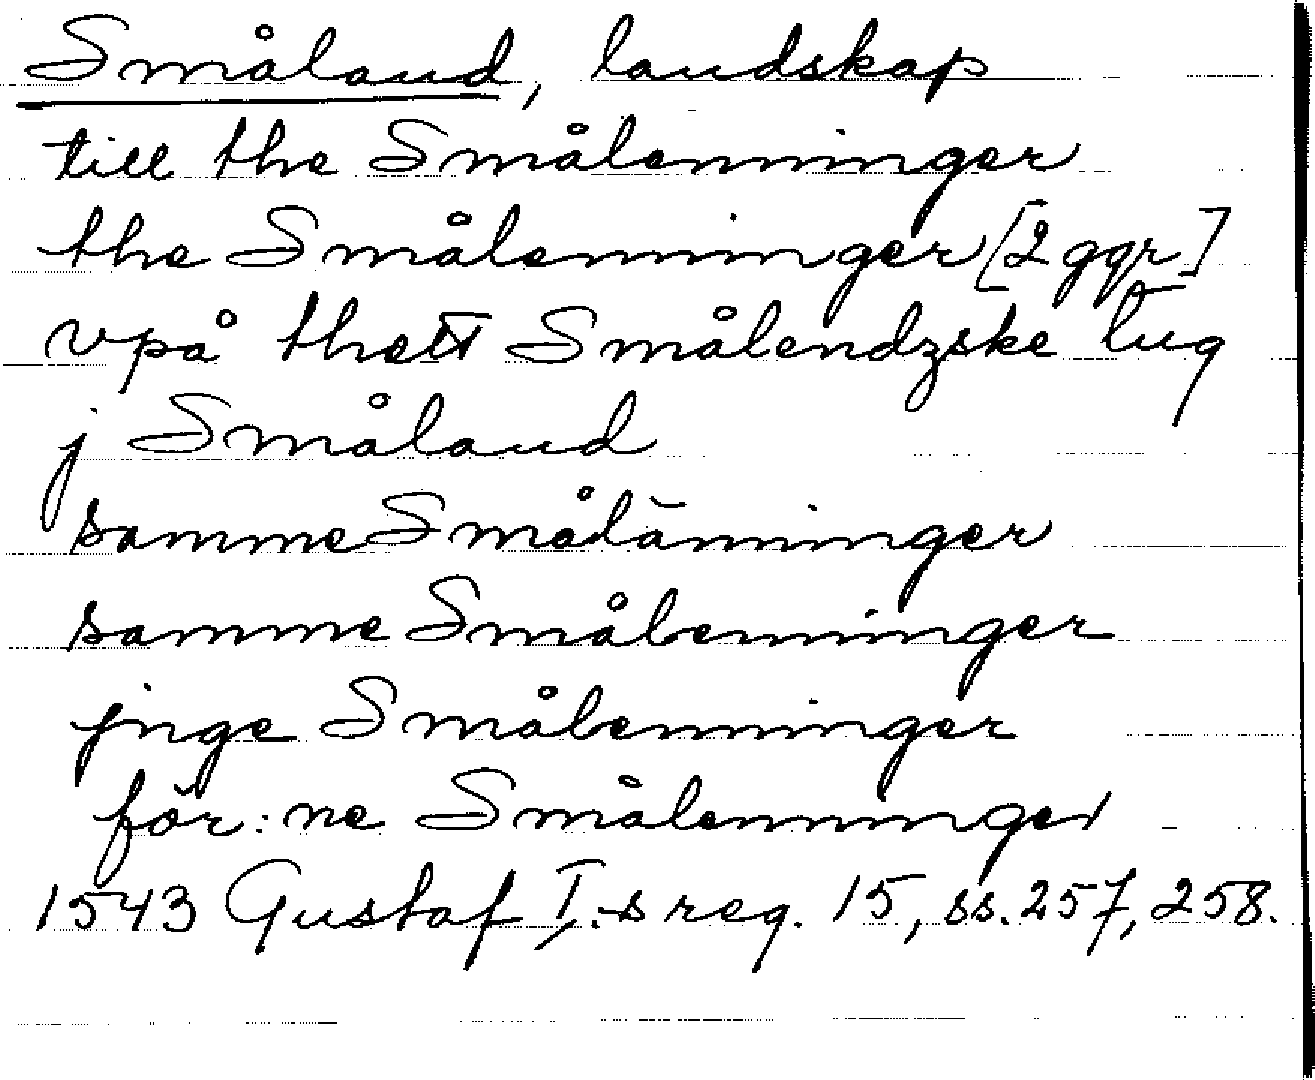 Småland, landskap
till the Smålenninger
the Smålenninger [2 ggr]
vpå thett Smålendzske tug
j Småland
samme Smålänninger
samme Smålenninger
jnge Smålenninger
för:ne Smålenninger
1543 Gustaf I:s reg. 15, ss. 257, 258.